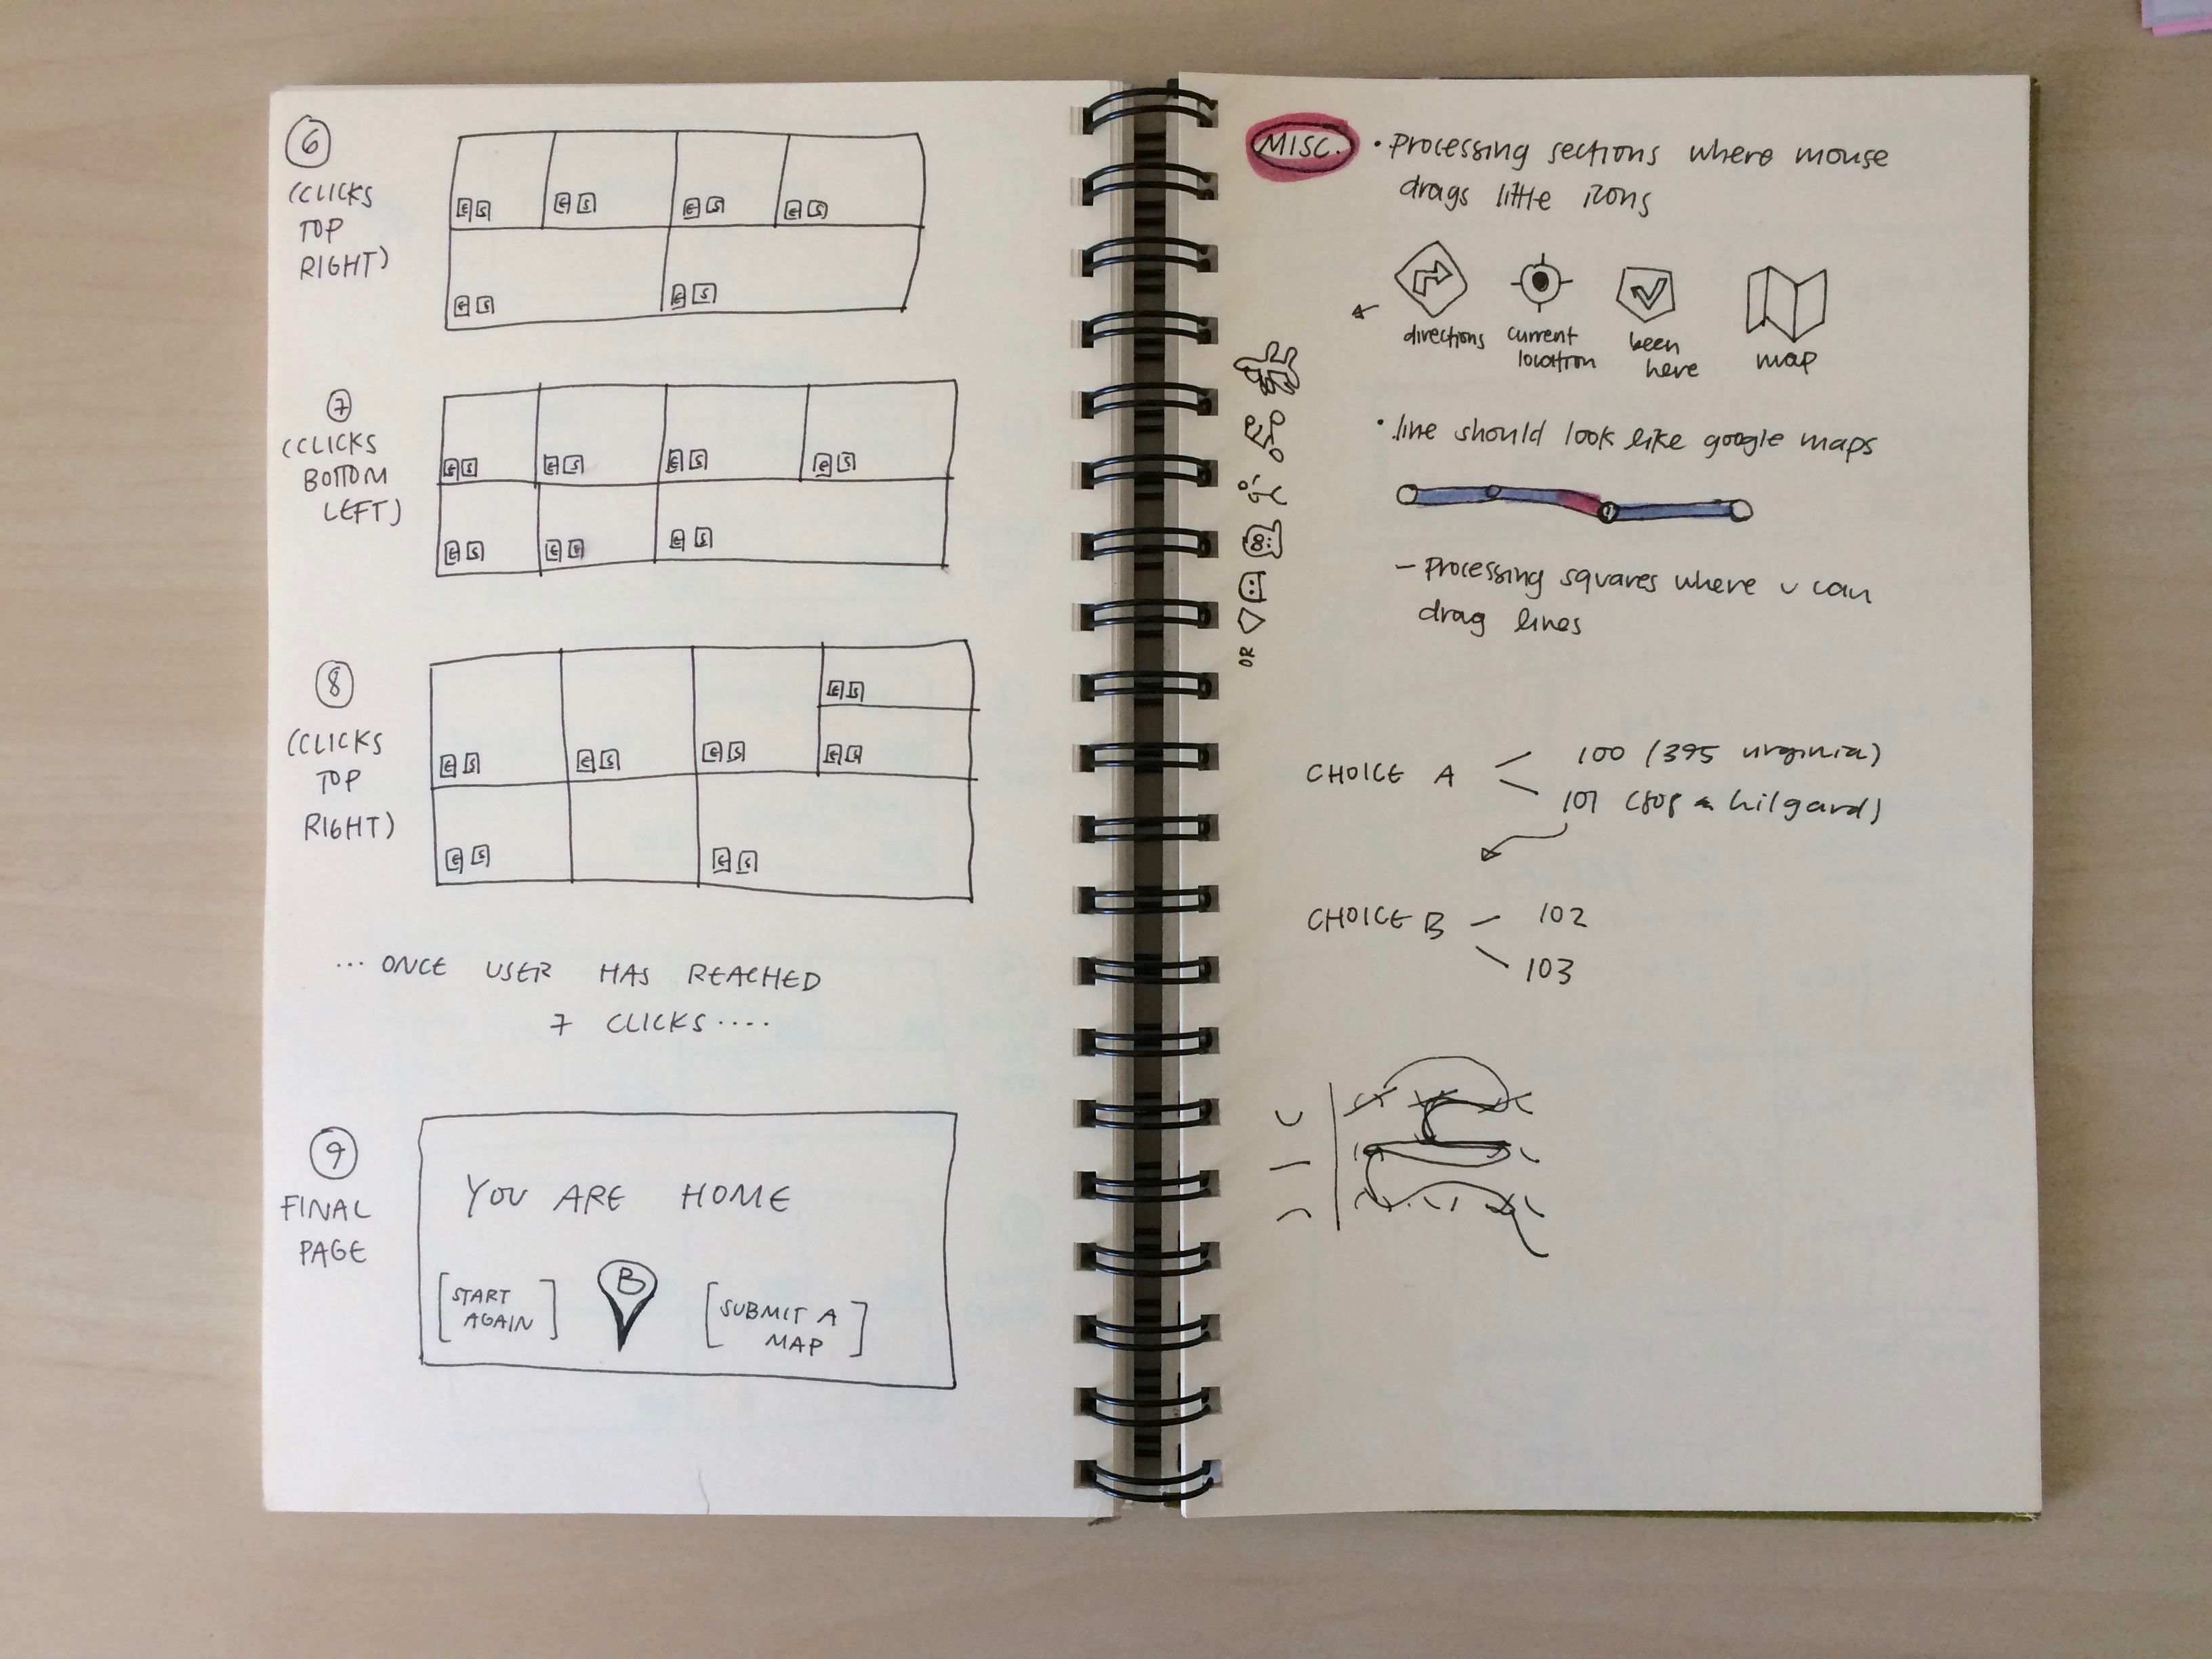 6
(CLICKS
TOP
RIGHT)
E S E S E S E S
E S E S
7
(CLICKS
BOTTOM
LEFT)
E S E S E S E S
E S E S E S
8
(CLICKS
TOP
RIGHT)
E S
E S E S E S E S
E S E S
... ONCE USER HAS REACHED
7 CLICKS....
9
FINAL
PAGE
YOU ARE HOME
[START
AGAIN]
B
[SUBMIT A
MAP]
MISC. • Processing sections where mouse
drags little icons
directions current
location been
here map
• line should look like google maps
- Processing squares where u can
drag lines
OR
CHOICE A 100 (395 virginia)
101 hilgard)
CHOICE B 102
103